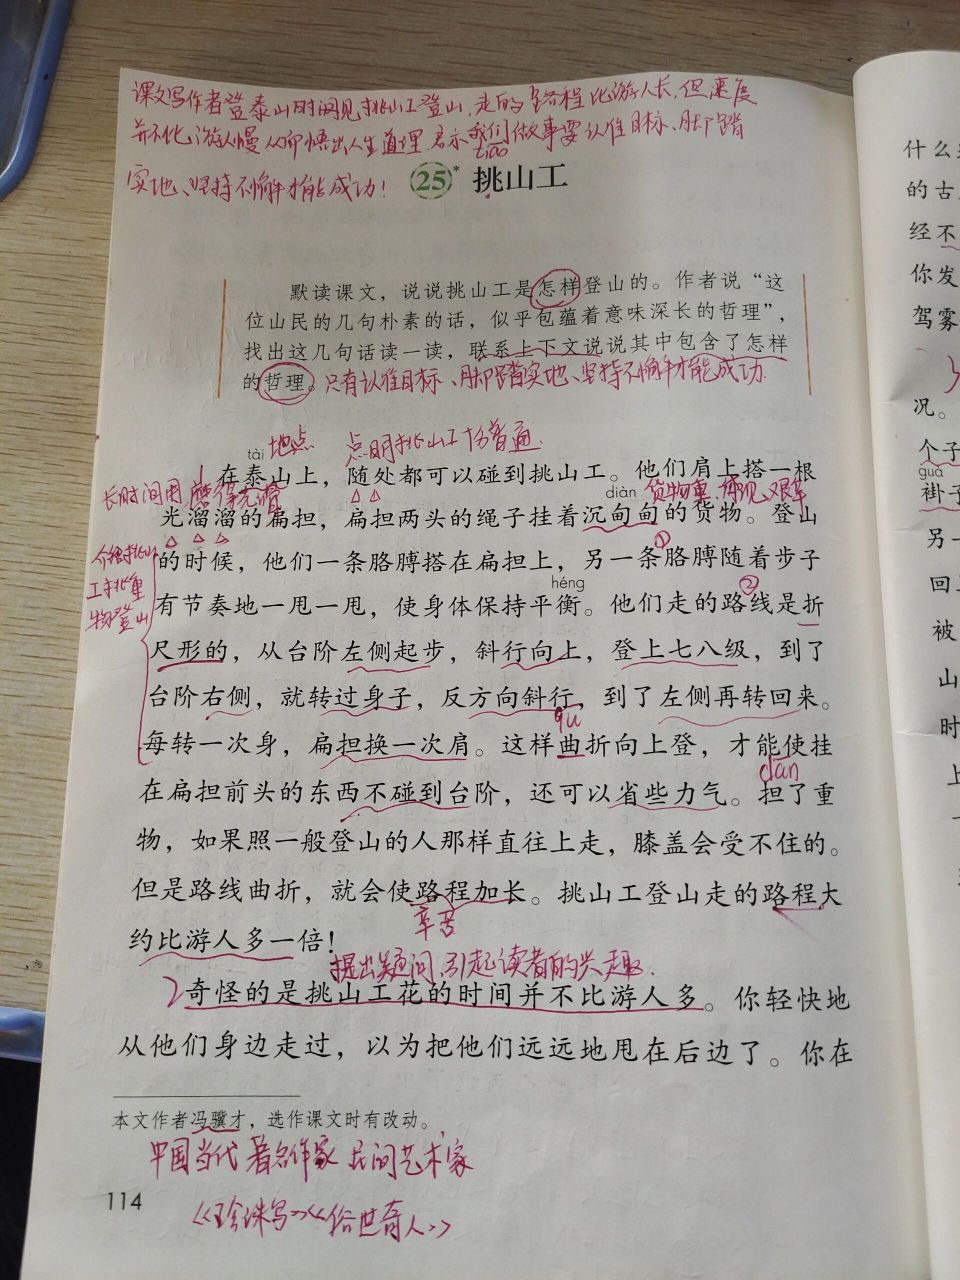 课文写作者登泰山时闻见挑山工登山，走的路程比游人长，但速度
并不比游人慢 从而悟出人生道理 启示我们做事要认准目标、脚踏
实地、坚持不懈才能成功！
tiāo
25* 挑山工
默读课文，说说挑山工是怎样登山的。作者说“这
位山民的几句朴素的话，似乎包蕴着意味深长的哲理”，
找出这几句话读一读，联系上下文说说其中包含了怎样
的哲理。只有认准目标、脚踏实地、坚持不懈才能成功.
地点 点明挑山工十分普通.
tài
在泰山上，随处都可以碰到挑山工。他们肩上搭一根
长时间用 光滑
diàn
货物重 艰辛
光溜溜的扁担，扁担两头的绳子挂着沉甸甸的货物。登山
①
介绍挑山
工挑重
物登山
的时候，他们一条胳膊搭在扁担上，另一条胳膊随着步子
héng
②
有节奏地一甩一甩，使身体保持平衡。他们走的路线是折
尺形的，从台阶左侧起步，斜行向上，登上七八级，到了
台阶右侧，就转过身子，反方向斜行，到了左侧再转回来。
qū
每转一次身，扁担换一次肩。这样曲折向上登，才能使挂
dān
在扁担前头的东西不碰到台阶，还可以省些力气。担了重
物，如果照一般登山的人那样直往上走，膝盖会受不住的。
但是路线曲折，就会使路程加长。挑山工登山走的路程大
辛苦
约比游人多一倍！
提出疑问，引起读者的兴趣.
2奇怪的是挑山工花的时间并不比游人多。你轻快地
从他们身边走过，以为把他们远远地甩在后边了。你在
本文作者冯骥才，选作课文时有改动。
中国当代 著名作家 民间艺术家
114
《珍珠鸟》《俗世奇人》
什么
的古
经不
你发
驾雾
况。
个子
guà
褂子
另一
回
被
山
时
上